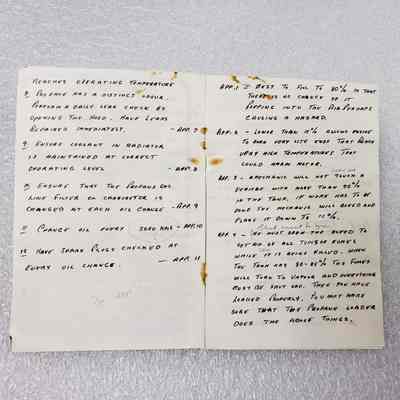 REACHES OPERATING TEMPERATURE
8 PROPANE HAS A DISTINCT ODOUR
PERFORM A DAILY LEAK CHECK BY
OPENING THE HOOD. HAVE LEAKS
REPAIRED IMMEDIATELY. - APP. 7
9 ENSURE COOLANT IN RADIATOR
IS MAINTAINED AT CORRECT
OPERATING LEVEL - APP. 8
10 ENSURE THAT THE PROPANE GAS
LINE FILTER OR CARBURETOR IS
CHANGED AT EACH OIL CHANGE - APP. 9
11 CHANGE OIL EVERY KMS - APP. 10
12 HAVE SPARK PLUGS CHECKED AT
EVERY OIL CHANGE. - APP. 11
APP. 1 BEST TO FILL TO 80% SO THAT
THERE IS NO CHANCE OF IT
POPPING INTO THE AIR PERHAPS
CAUSING A HAZARD.
APP. 2 - LOWER THAN 10% ALLOWS ENGINE
TO BURN VERY LITE ENDS THAT REACH
VERY HIGH TEMPERATURES THAT
COULD HARM MOTOR.
APP. 3 - MECHANIC WILL NOT TOUCH A
VEHICLE WITH MORE THAN
IN THE TANK. IF WORK HAS TO BE
DONE THE MECHANIC WILL BLEED AND
FLARE IT DOWN TO 10%.
APP. 4 - YOU MUST OPEN THE BLEED TO
GET RID OF ALL THESE FUMES
WHILE IT IS BEING FILLED. WHEN
THE TANK HAS 80-85% THE FUMES
WILL TURN TO VAPOUR AND EVERYTHING
MUST BE SHUT OFF. THEN YOU HAVE
LOADED PROPERLY. YOU MUST MAKE
SURE THAT THE PROPANE LOADER
DOES THE ABOVE THINGS.